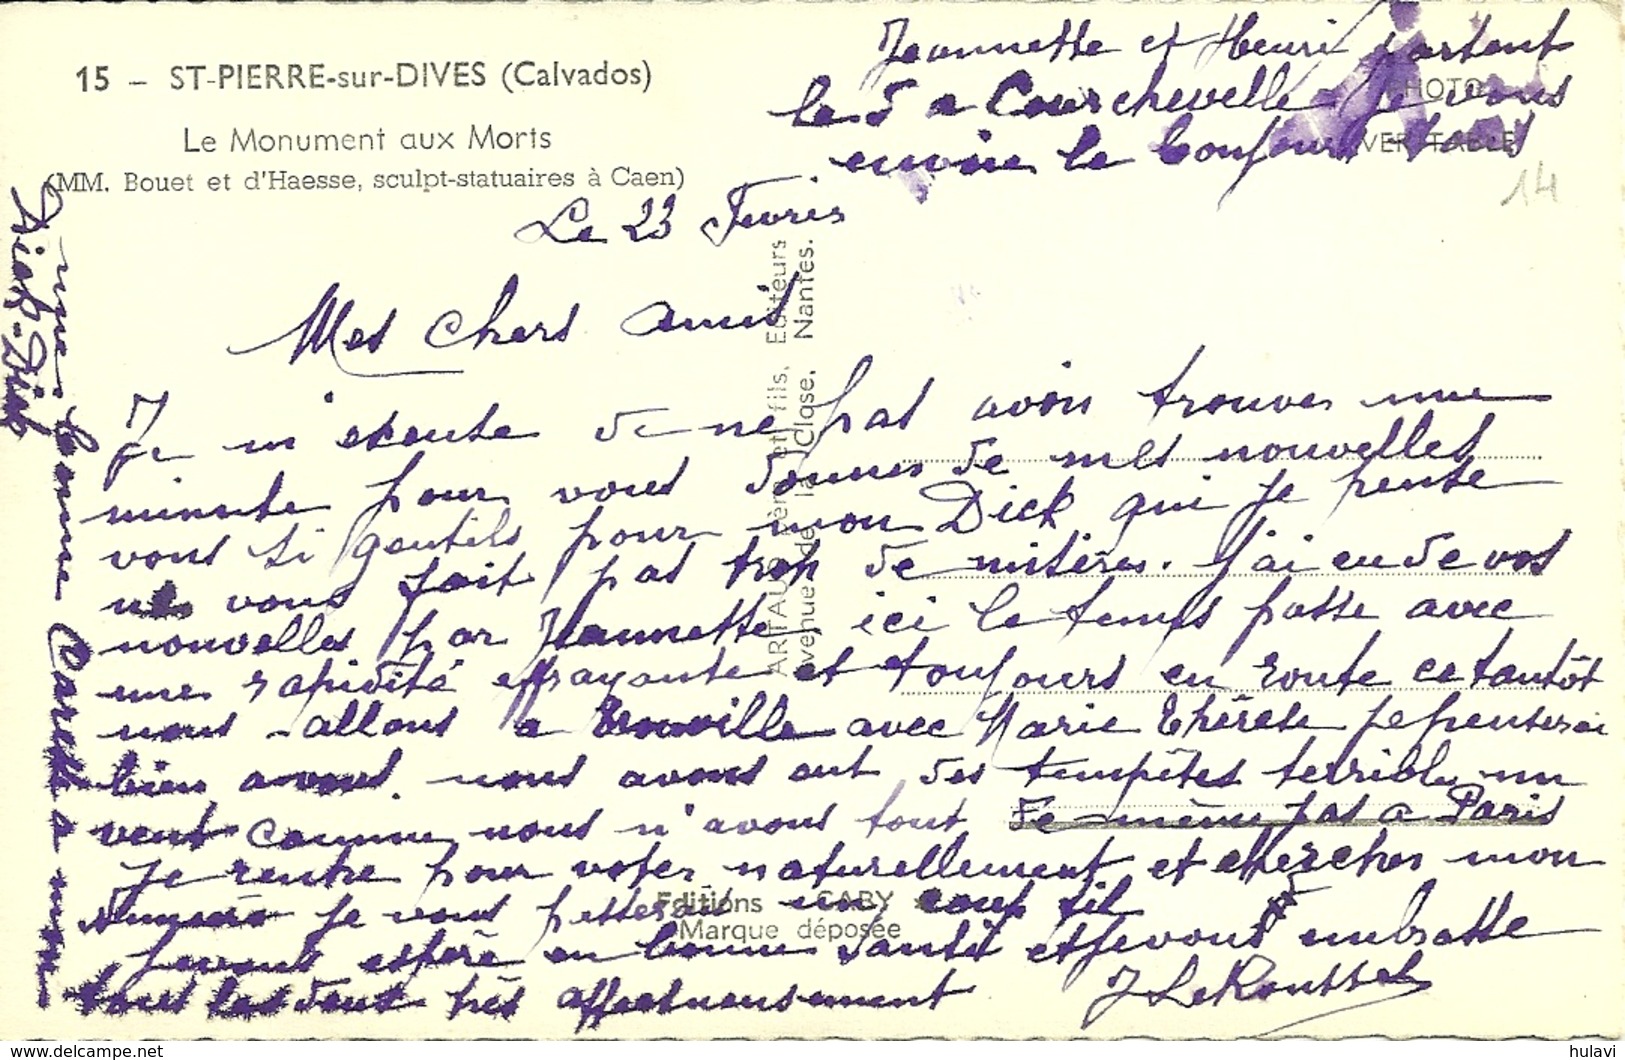 15 – ST-PIERRE-sur-DIVES (Calvados)
Le Monument aux Morts
(MM. Bouet et d'Haesse, sculpt-statuaires à Caen)
Jeannette et Henri partent
le 5 a Courchevelle Je vous
envoie le bonjour tous
PHOTO
VERITABLE
14
Le 23 Fevrier
Mes chers amis
Je m'excuse de ne pas avoir trouver une
minute pour vous donner de mes nouvelles
vous si gentils pour mon Dick qui je pense
ne vous fait pas trop de misères. J'ai eu de vos
nouvelles par Jeannette, ici le temps passe avec
une rapidité effrayante et toujours en route cetantôt
nous allons a Trouville avec Marie Thérèse je penserai
bien a vous. nous avons eut des tempêtes terrible un
vent comme nous n'avons tout de même pas a Paris
Je rentre pour voter naturellement et chercher mon
je vous passerai un coup fil
je vous espère en bonne santé et je vous embrasse
tous les deux très affectueusement J LeRoussel
une bonne Caresse a mon
Dick-Dick
ARTAUD Père et fils, Editeurs
avenue de la Close, Nantes.
Editions GABY
Marque déposée
hulavi